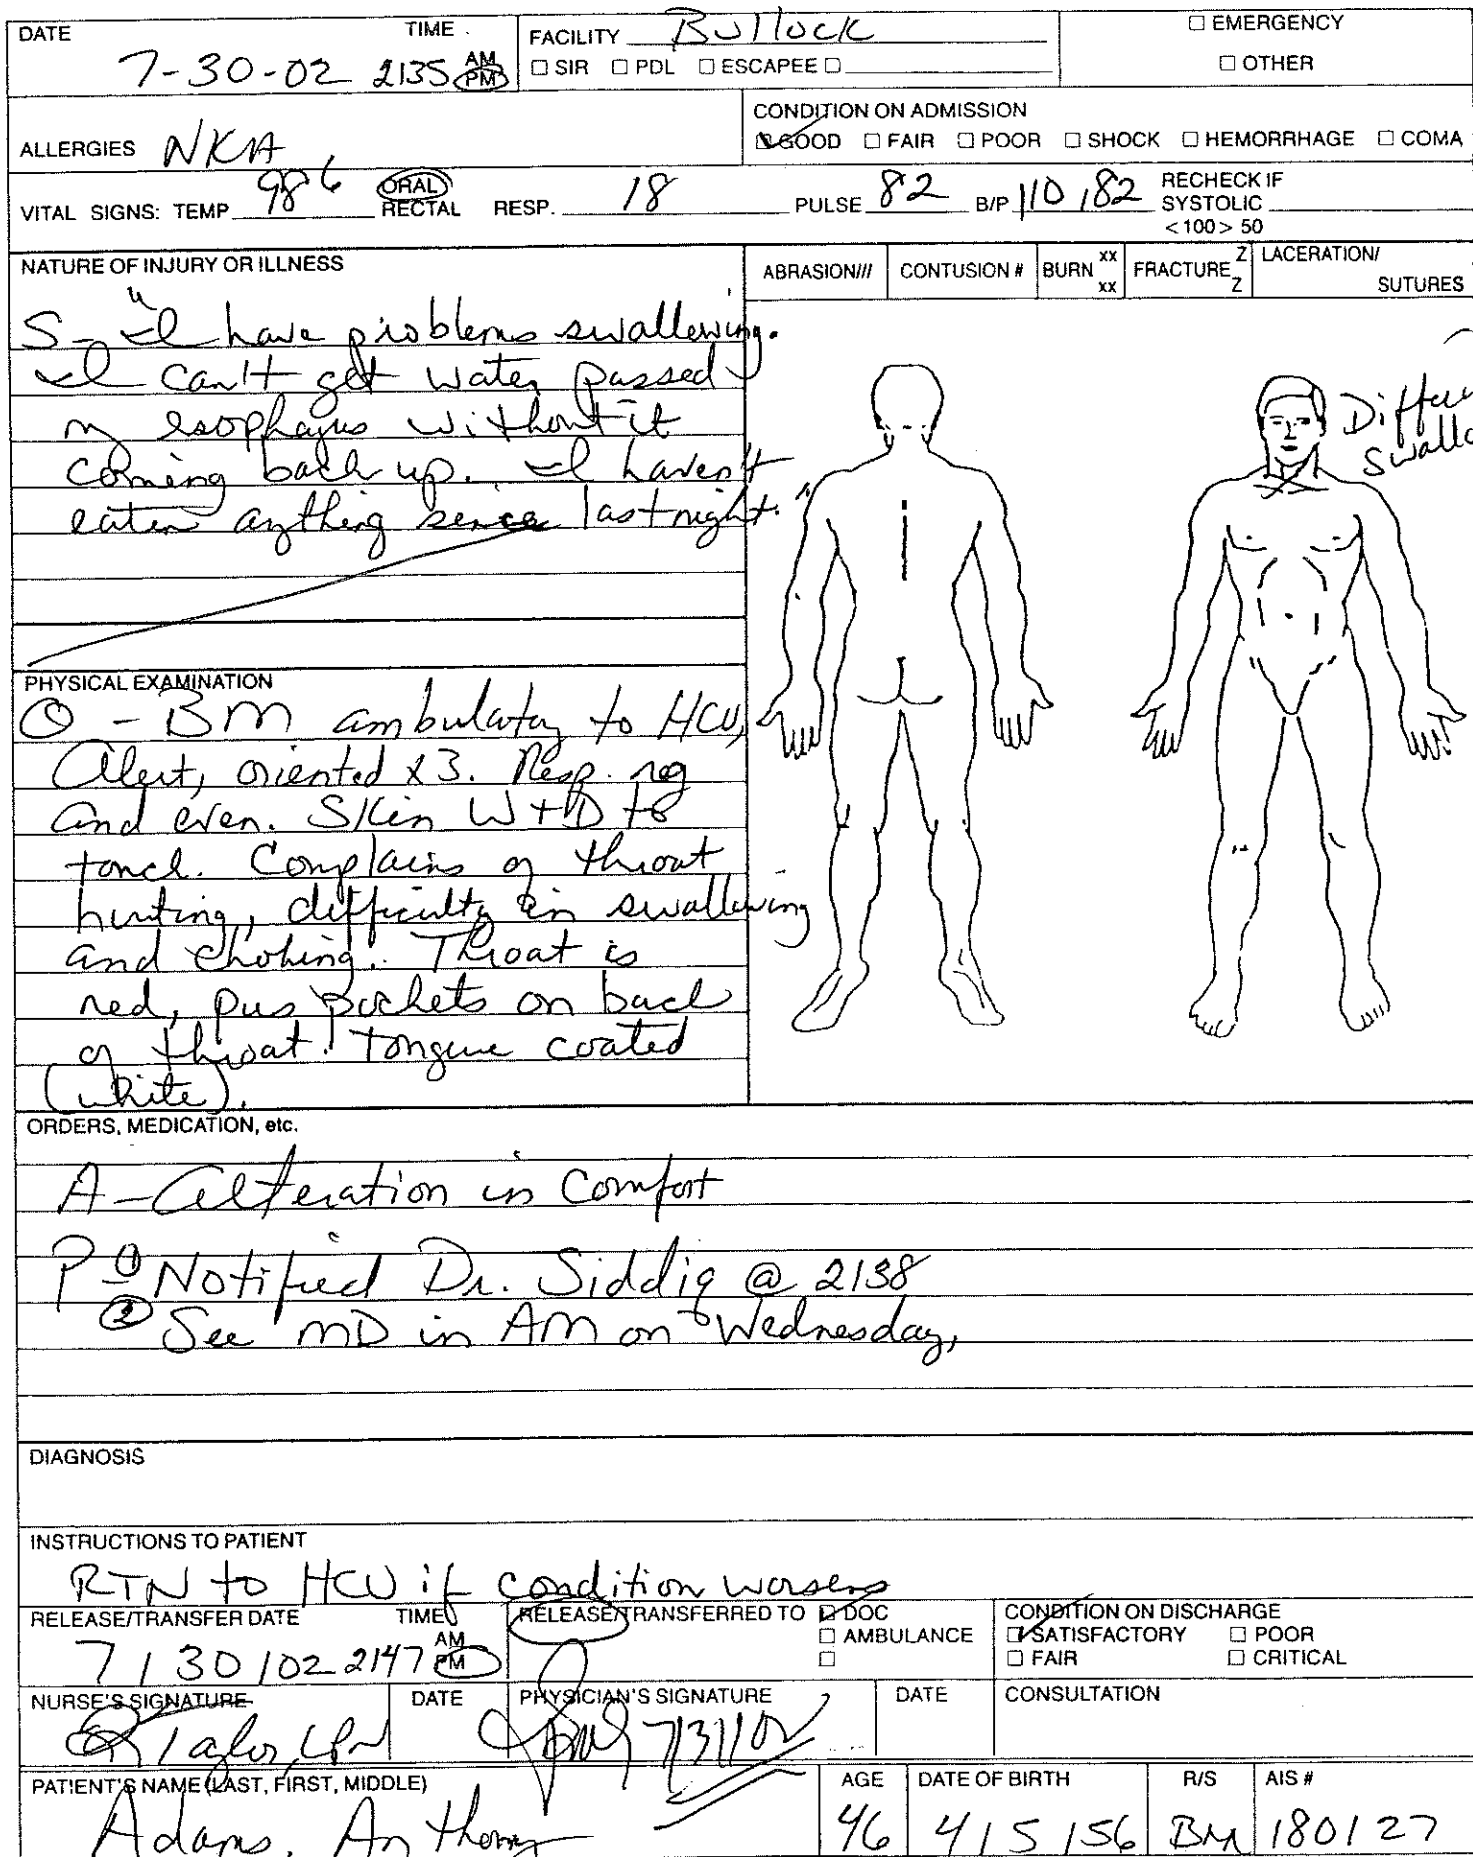 DATE TIME
7-30-02 2135 AM PM
FACILITY Bullock
□ SIR □ PDL □ ESCAPEE □
□ EMERGENCY
□ OTHER
ALLERGIES NKA
CONDITION ON ADMISSION
□ GOOD □ FAIR □ POOR □ SHOCK □ HEMORRHAGE □ COMA
VITAL SIGNS: TEMP 98 6 ORAL RECTAL RESP. 18 PULSE 82 B/P 110 / 82 RECHECK IF SYSTOLIC <100> 50
NATURE OF INJURY OR ILLNESS
ABRASION/// CONTUSION # BURN xx xx FRACTURE Z Z LACERATION/ SUTURES
S- "I have problems swallowing.
I can't get water passed
my esophagus without it
coming back up. I haven't
eaten anything since last night."
Swallo
PHYSICAL EXAMINATION
O - BM ambulatory to HCU,
Alert, oriented x3. Resp. reg
and even. Skin W+D to
touch. Complains of throat
hurting, difficulty in swallowing
and choking. Throat is
red, pus pockets on back
of throat. Tongue coated
(white).
ORDERS, MEDICATION, etc.
A- Alteration in Comfort
P- ① Notified Dr. Siddiq @ 2138
② See MD in AM on Wednesday,
DIAGNOSIS
INSTRUCTIONS TO PATIENT
RTN to HCU if condition worsens
RELEASE/TRANSFER DATE TIME
7 / 30 / 02 2147 AM PM
RELEASE/TRANSFERRED TO □ DOC
□ AMBULANCE
□
CONDITION ON DISCHARGE
□ SATISFACTORY □ POOR
□ FAIR □ CRITICAL
NURSE'S SIGNATURE DATE PHYSICIAN'S SIGNATURE DATE CONSULTATION
Taylor, LPN 7/31/02
PATIENT'S NAME (LAST, FIRST, MIDDLE) AGE DATE OF BIRTH R/S AIS #
Adams, Anthony 46 4 / 5 / 56 BM 180127